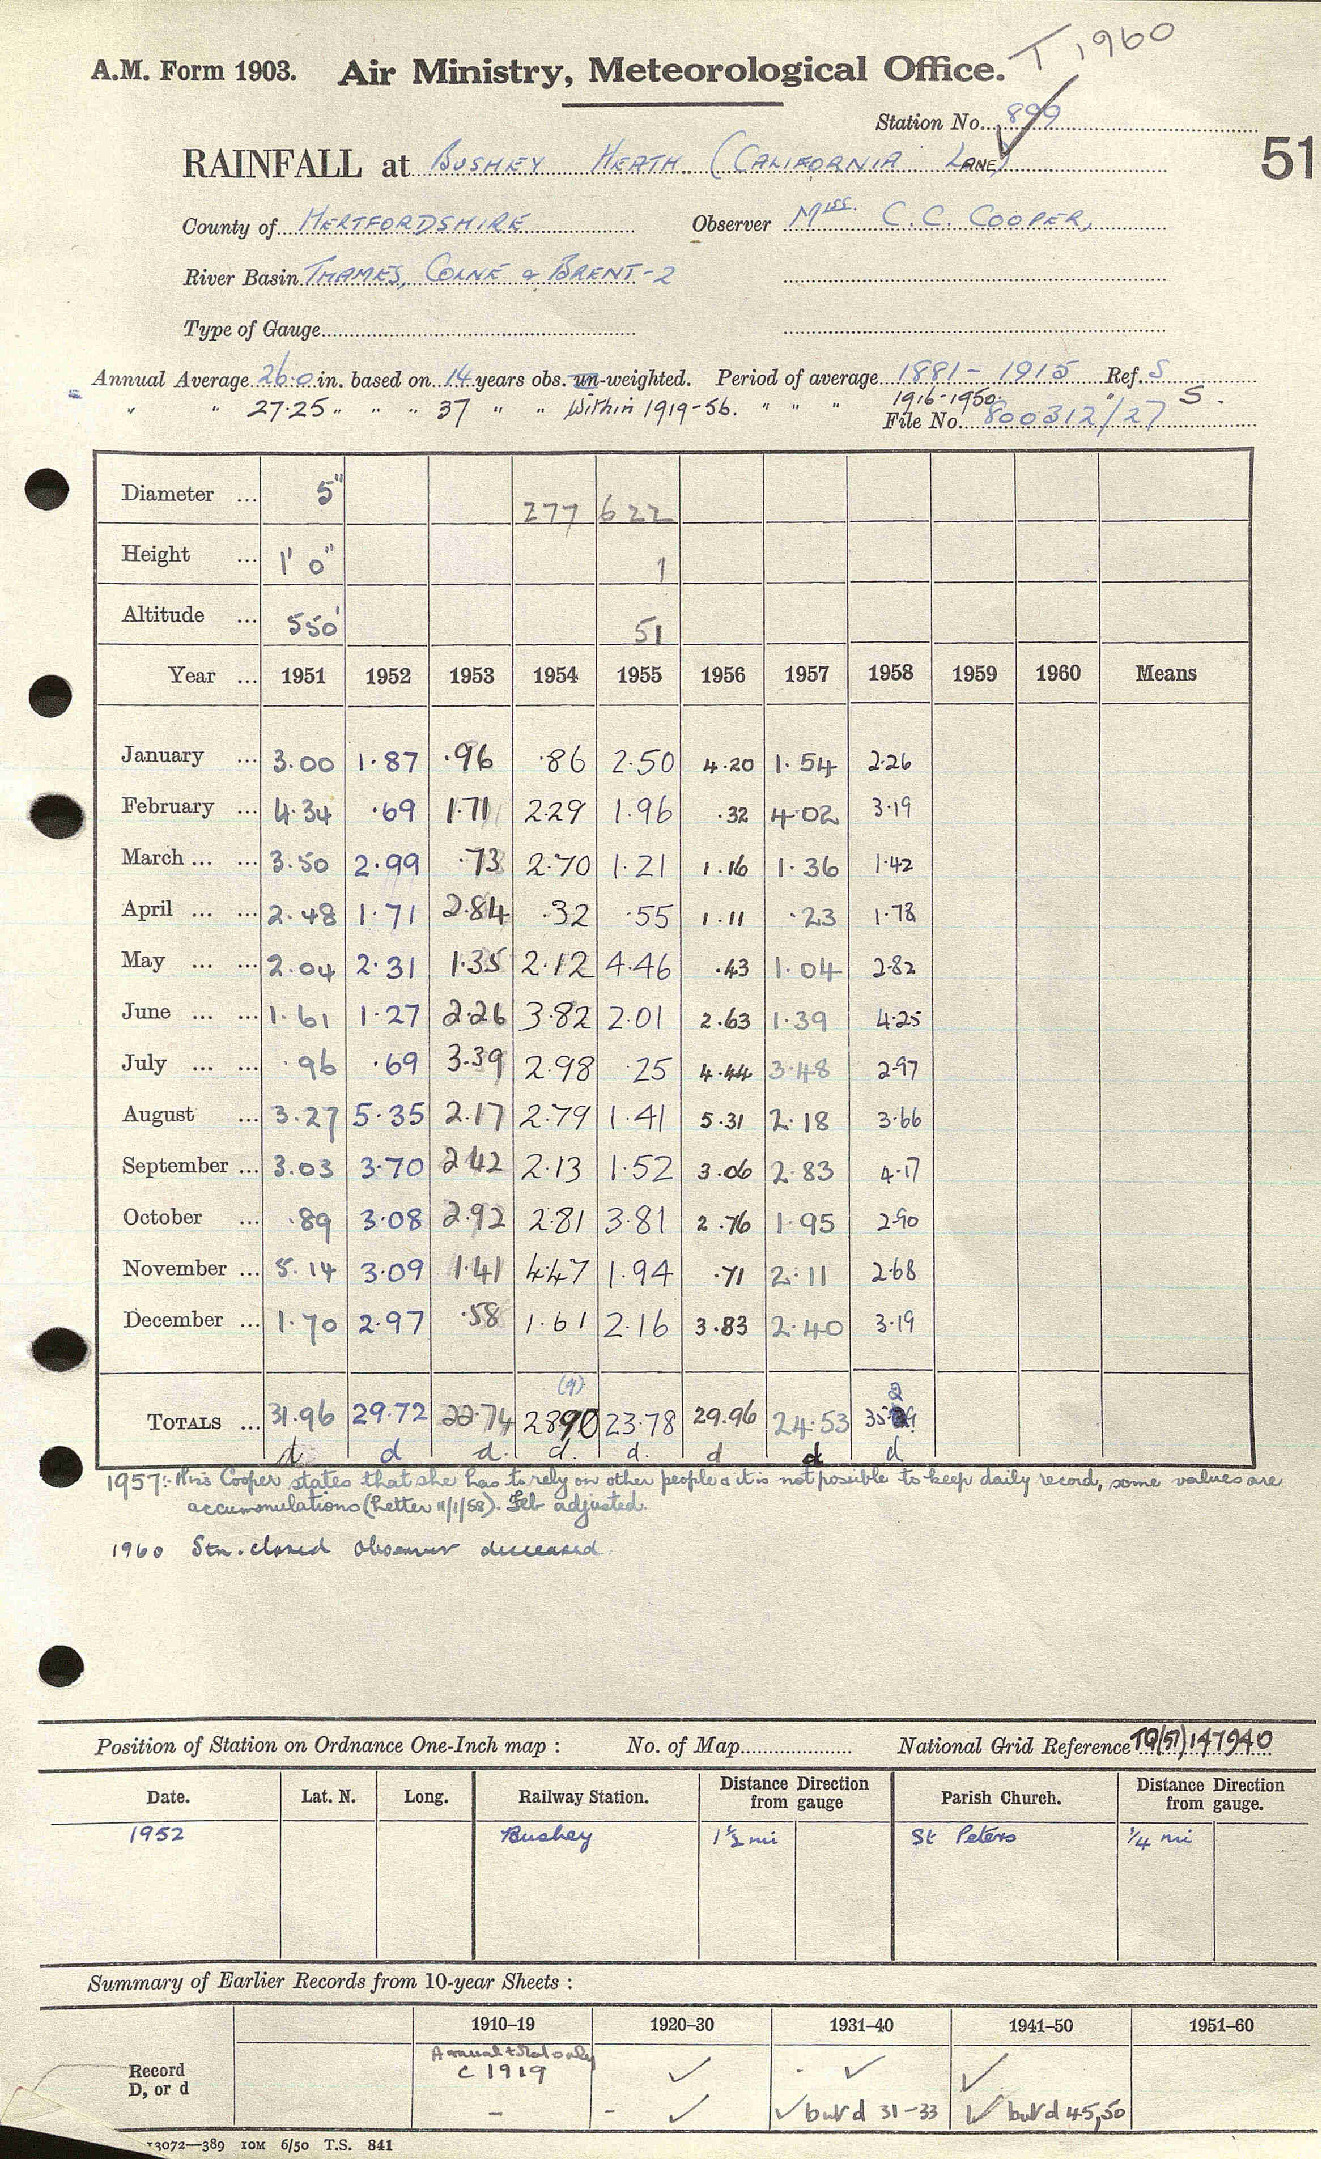 T 1960
A.M. Form 1903. Air Ministry, Meteorological Office.
Station No. 899
RAINFALL at BUSHEY HEATH (CALIFORNIA LANE)
51
County of HERTFORDSHIRE Observer MISS. C.C. COOPER,
River Basin THAMES, COLNE & BRENT-2
Type of Gauge
Annual Average 26.0 in. based on 14 years obs. un-weighted. Period of average 1881-1915 Ref. S
" " 27.25 " " " 37 " " Within 1919-56. " " " 1916-1950 " S.
File No. 800312/27
Diameter ... 5" 277 622
Height ... 1' 0" 1
Altitude ... 550' 51
Year ... 1951 1952 1953 1954 1955 1956 1957 1958 1959 1960 Means
January ... 3.00 1.87 .96 .86 2.50 4.20 1.54 2.26
February ... 4.34 .69 1.71 2.29 1.96 .32 4.02 3.19
March ... ... 3.50 2.99 .73 2.70 1.21 1.16 1.36 1.42
April ... ... 2.48 1.71 2.84 .32 .55 1.11 .23 1.78
May ... ... 2.04 2.31 1.35 2.12 4.46 .43 1.04 2.82
June ... ... 1.61 1.27 2.26 3.82 2.01 2.63 1.39 4.25
July ... ... .96 .69 3.39 2.98 .25 4.44 3.48 2.97
August ... 3.27 5.35 2.17 2.79 1.41 5.31 2.18 3.66
September ... 3.03 3.70 2.42 2.13 1.52 3.06 2.83 4.17
October ... .89 3.08 2.92 2.81 3.81 2.76 1.95 2.90
November ... 5.14 3.09 1.41 4.47 1.94 .71 2.11 2.68
December ... 1.70 2.97 .58 1.61 2.16 3.83 2.40 3.19
(9) 2
TOTALS ... 31.96 29.72 22.74 28.90 23.78 29.96 24.53 35.29
d d d. d. d. d d d
1957:- Miss Cooper states that she has to rely on other people & it is not possible to keep daily record, some values are
accummulations (Letter 11/1/58). Feb adjusted.
1960 Stn. closed Observer deceased.
Position of Station on Ordnance One-Inch map : No. of Map National Grid Reference TQ(51)147940
Date. Lat. N. Long. Railway Station. Distance Direction from gauge Parish Church. Distance Direction from gauge.
1952 Bushey 1½ mi St Peters ¼ mi
Summary of Earlier Records from 10-year Sheets :
1910–19 1920–30 1931–40 1941–50 1951–60
Annual total only
Record c 1919 ✓ - ✓ ✓
D, or d
– - ✓ ✓ but d 31-33 ✓ but d 45,50
13072—389 IOM 6/50 T.S. 841